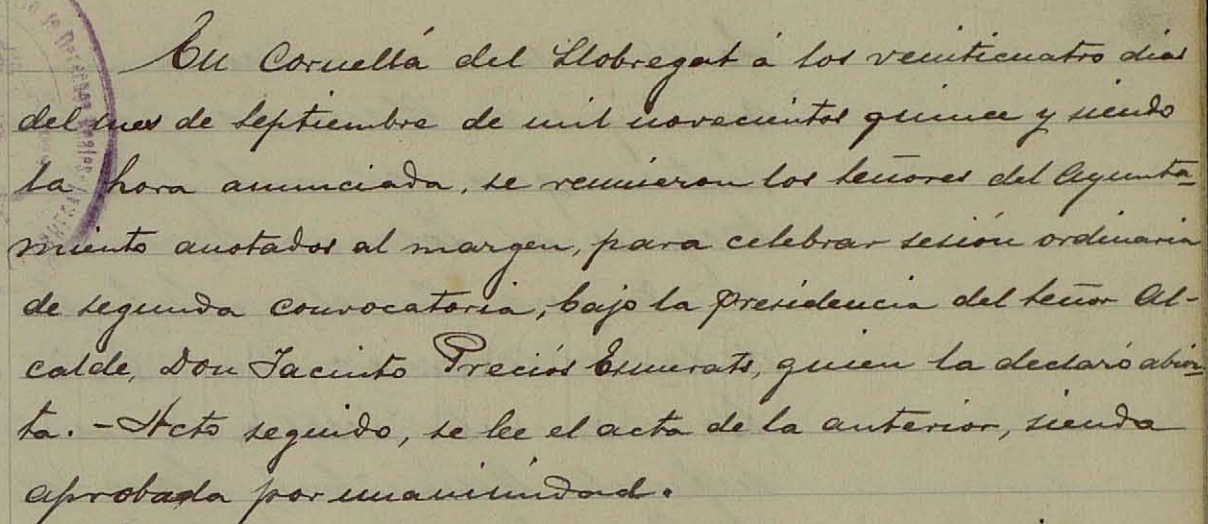 En Cornellá del Llobregat á los veinticuatro dias
del mes de Septiembre de mil novecientos quince y siendo
la hora anunciada, se reunieron los señores del Ayunta-
miento anotados al margen, para celebrar sesión ordinaria
de segunda convocatoria, bajo la presidencia del señor Al-
calde, Don Jacinto Preciós Esmerats, quien la declaró abier-
ta. - Acto seguido, se lee el acta de la anterior, siendo
aprobada por unanimidad.